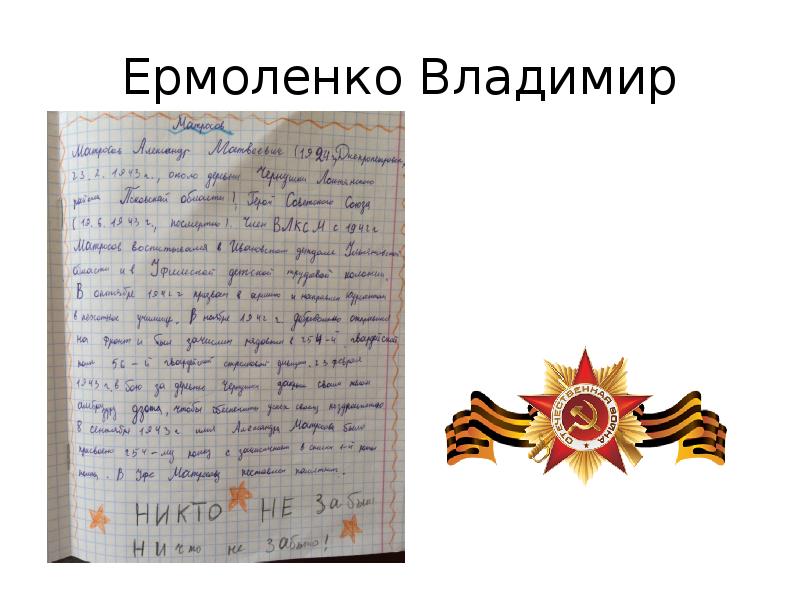 Ермоленко Владимир
Матросов
Матросов Александр Матвеевич (1924, Днепропетровск,
23.2.1943 г., около деревни Чернушки Локнянского
района Псковской области), Герой Советского Союза
(19.6.1943 г., посмертно). Член ВЛКСМ с 1942 г
Матросов воспитывался в Ивановском детдоме Ульяновской
области и в Уфимской детской трудовой колонии.
В октябре 1942 г призван в армию и направлен курсантом
в пехотное училище. В ноябре 1942 г. добровольно отправился
на фронт и был зачислен рядовым в 254-й гвардейский
полк 56-й гвардейской стрелковой дивизии. 23 февраля
1943 г. в бою за деревню Чернушки закрыл своим телом
амбразуру дзота, чтобы обеспечить успех своего подразделения
8 сентября 1943 г имя Александра Матросова было
присвоено 254-му полку с зачислением в списки 1-й роты
полка. В Уфе Матросову поставлен памятник.
НИКТО НЕ Забыт
НИчто не Забыто!
ОТЕЧЕСТВЕННАЯ ВОЙНА